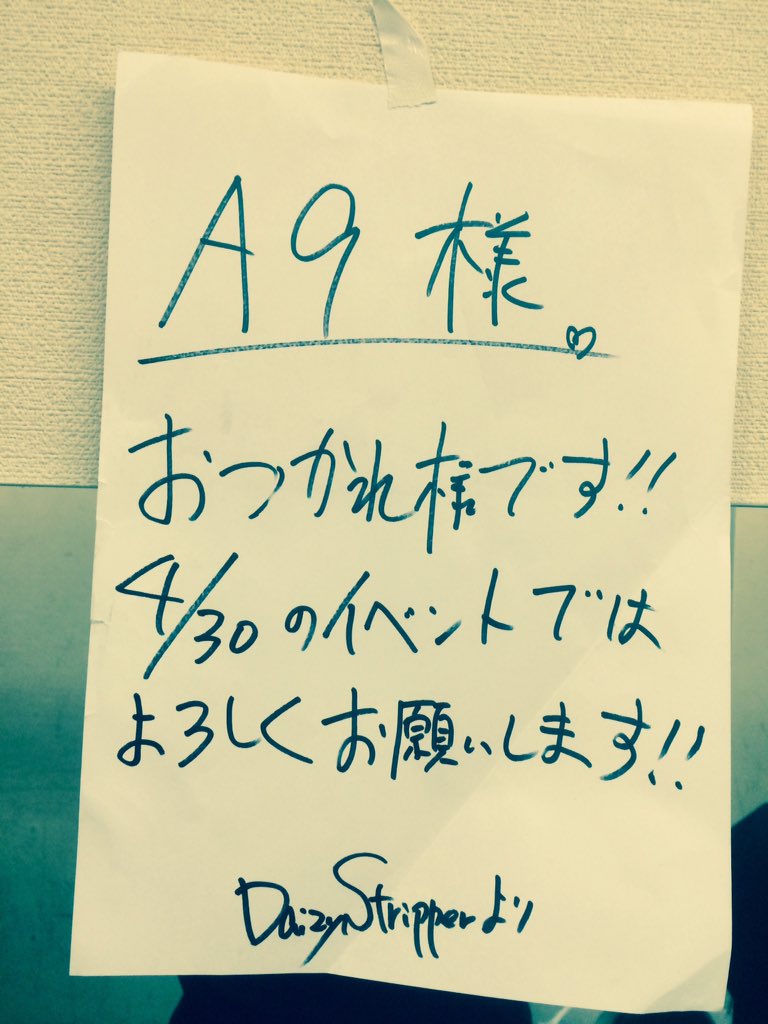 A9様♡
おつかれ様です!!
4/30のイベントでは
よろしくお願いします!!
DaizyStripperより